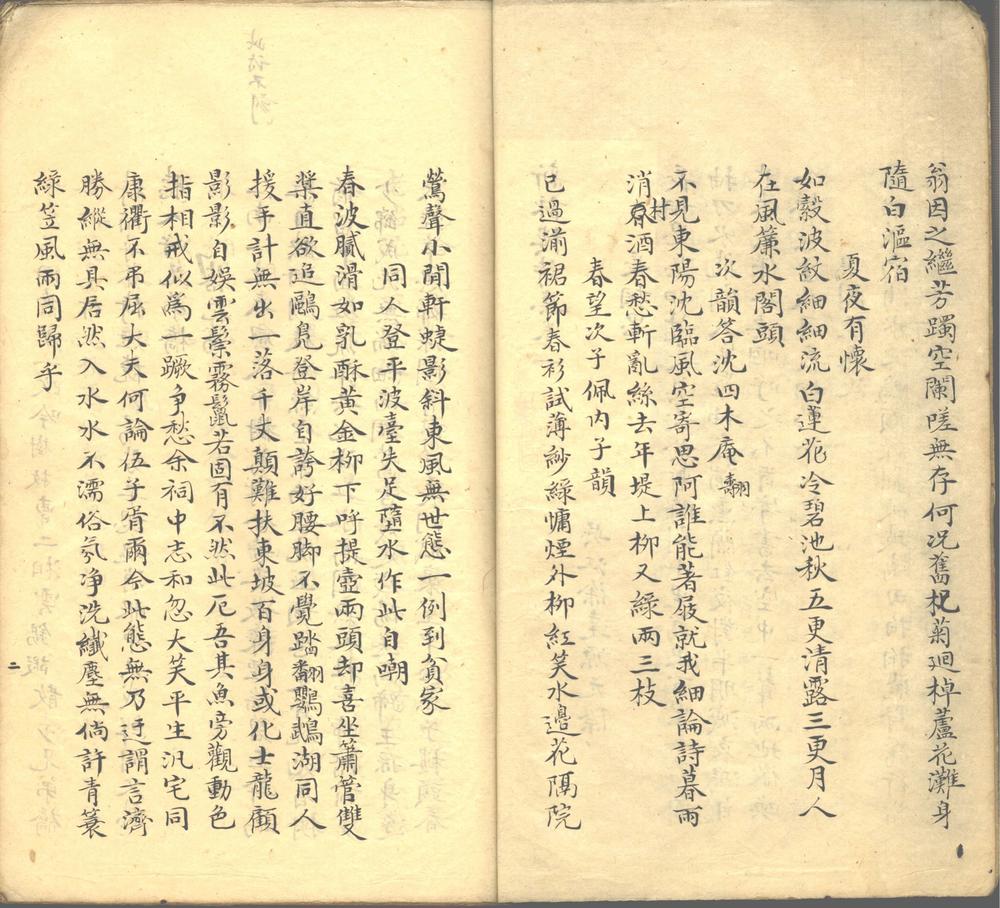 翁因之繼芳躅空闌嗟無存何况舊杞菊廻棹蘆花灘身
隨白漚宿
夏夜有懷
如縠波紋細細流白蓮花冷碧池秋五更清露三更月人
在風簾水閣頭
次韻答沈四木庵翻
不見東陽沈臨風空寄思阿誰能著屐就我細論詩暮雨
消村酒春愁斬亂絲去年堤上柳又綠兩三枝
春望次子佩内子韻
已過湔裙節春衫試薄紗綠慵煙外柳紅笑水邊花隔院
鶯聲小閒軒蜨影斜東風無世態一例到貧家
同人登平波臺失足墮水作此自嘲
春波膩滑如乳酥黃金柳下呼提壺兩頭却喜坐簫管雙
槳直欲追鷗鳧登岸自誇好腰脚不覺踏翻鸚鵡湖同人
援手計無出一落千丈顛難扶東坡百身身或化士龍顧
影影自娛雲鬟霧鬣若固有不然此厄吾其魚旁觀動色
指相戒似爲一蹶争愁余祠中志和忽大笑平生汎宅同
康衢不弔屈大夫何論伍子胥爾今此態無乃迂謂言濟
勝縱無具居然入水水不濡俗氛净洗纖塵無倘許青蓑
綠笠風雨同歸乎
二